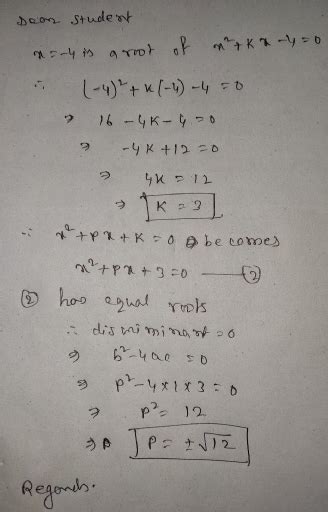 Dear student
x = -4 is a root of x² + Kx - 4 = 0
∴ (-4)² + K(-4) - 4 = 0
⇒ 16 - 4K - 4 = 0
⇒ -4K + 12 = 0
⇒ 4K = 12
⇒ K = 3
∵ x² + px + K = 0 becomes
x² + px + 3 = 0 — ②
② has equal roots
∴ discriminant = 0
⇒ b² - 4ac = 0
⇒ p² - 4 × 1 × 3 = 0
⇒ p² = 12
⇒ P = ± √12
Regards.